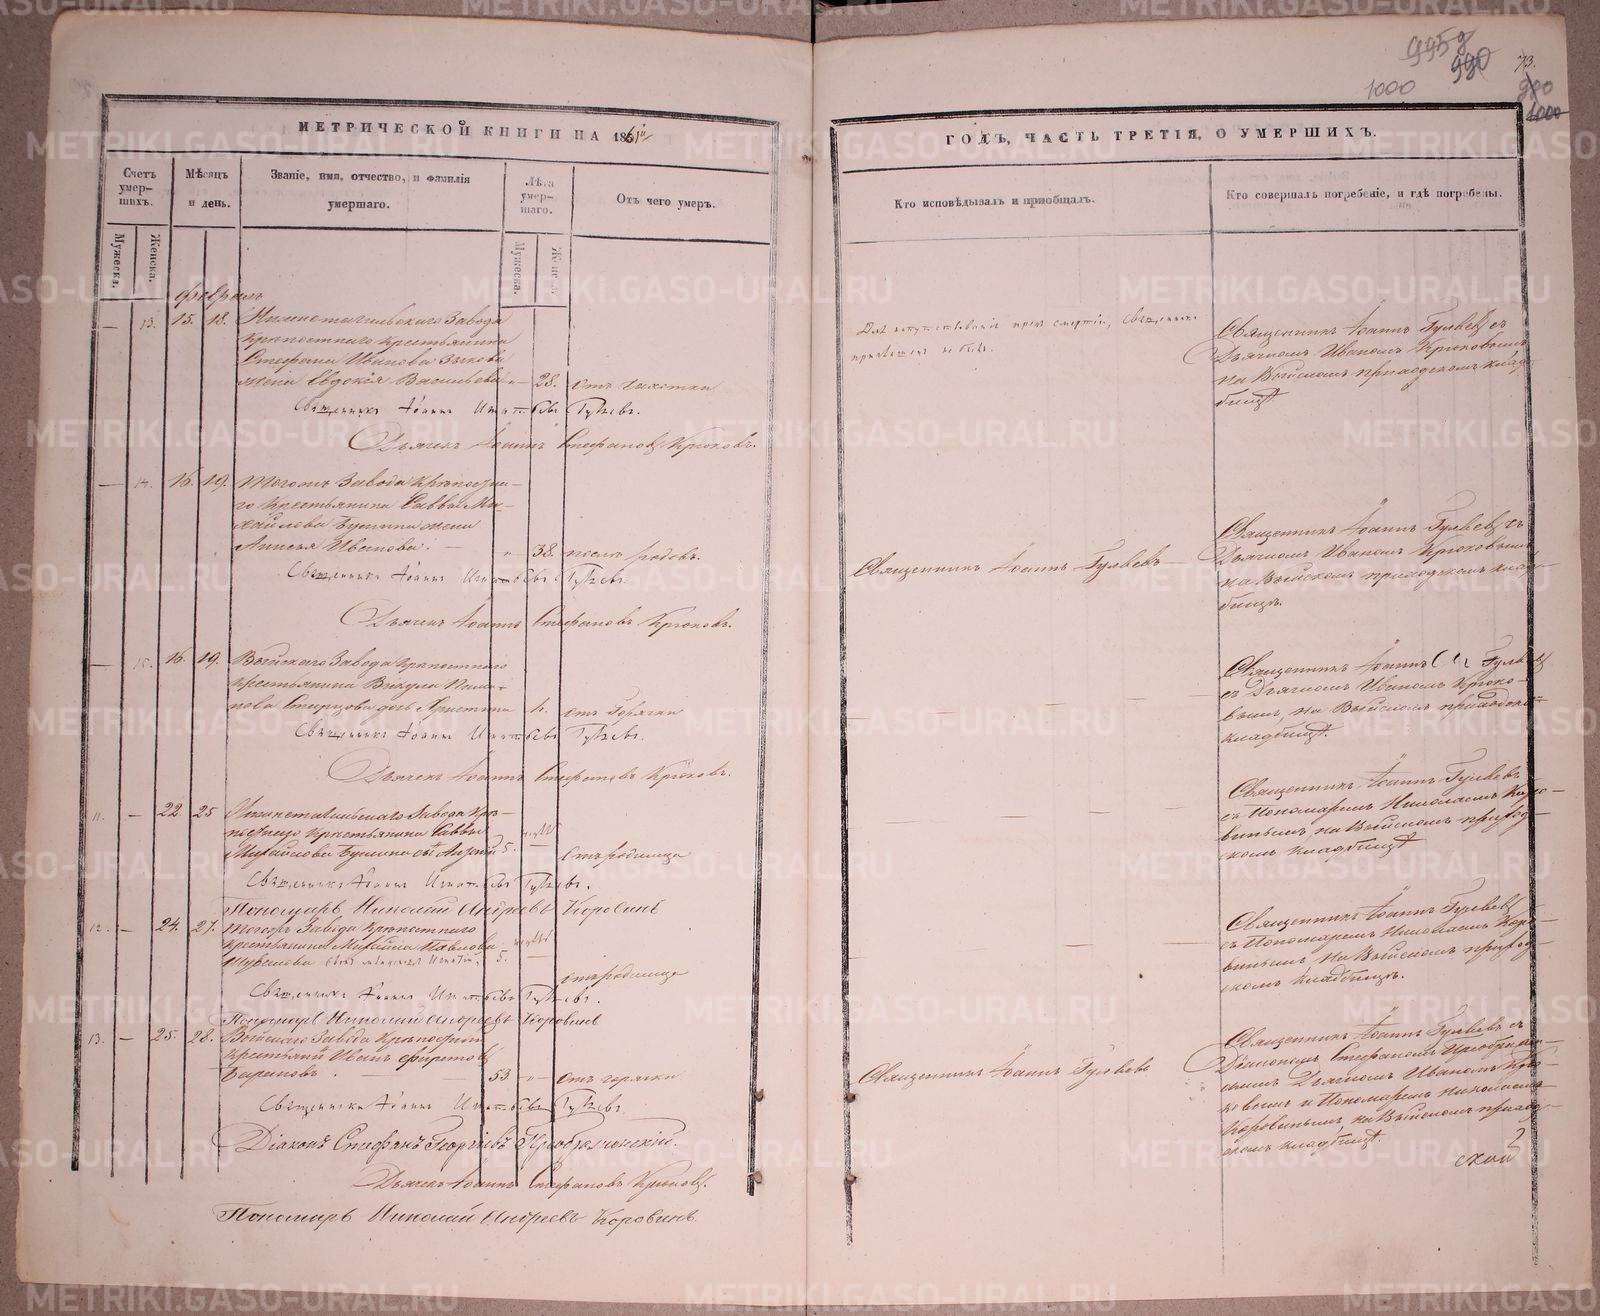 995д
990
73.
1000
980
1000
МЕТРИЧЕСКОЙ КНИГИ НА 1861й
ГОДЪ, ЧАСТЬ ТРЕТІЯ, О УМЕРШИХЪ.
Счетъ умер-шихъ.
Мѣсяцъ и день.
Званіе, имя, отчество, и фамилія умершаго.
Лѣта умер-шаго.
Отъ чего умеръ.
Кто исповѣдывалъ и пріобщалъ.
Кто совершалъ погребеніе, и гдѣ погребены.
Мужеска.
Женска.
Мужеска.
Женск.
Февраль
— 13. 15. 18. Нижнетагильскаго Завода
Крѣпостнаго Крестьянина
Стефана Иванова Зыкова
жена Евдокія Васильева „ 28. отъ чахотки
Священникъ Іоаннъ Игнатьевъ Гуляевъ.
Дьячекъ Іоаннъ Стефановъ Крюковъ.
Для напутствованія предъ смертію, Священникъ
приглашенъ не былъ.
Священникъ Іоаннъ Гуляевъ съ
Дьячкомъ Иваномъ Крюковымъ
на Выйскомъ приходскомъ клад-
бищѣ
— 14. 16. 19. Тогожъ Завода крѣпостна-
го Крестьянина Саввы Ми-
хайлова Бушина жена
Анисья Иванова. — „ 38. послѣ родовъ.
Священникъ Іоаннъ Игнатьевъ Гуляевъ.
Дьячекъ Іоаннъ Стефановъ Крюковъ.
Священникъ Іоаннъ Гуляевъ
Священникъ Іоаннъ Гуляевъ съ
Дьячкомъ Иваномъ Крюковымъ
на Выйскомъ приходскомъ клад-
бищѣ.
— 15. 16. 19. Выйскаго Завода Крѣпостнаго
крестьянина Викула
дочь Христина 4. отъ Горячки
Священникъ Іоаннъ Игнатьевъ Гуляевъ.
Дьячекъ Іоаннъ Стефановъ Крюковъ.
Священникъ Іоаннъ Гуляевъ
съ Дьячкомъ Иваномъ Крюко-
вымъ, на Выйскомъ приходскомъ
кладбищѣ.
11. — 22. 25 Нижнетагильскаго Завода Крѣ-
постнаго Крестьянина Саввы
Михайлова Бушина сынъ Андрей 5. —
отъ родимца
Священникъ Іоаннъ Игнатьевъ Гуляевъ.
Пономарь Николай Андреевъ Коровинъ
Священникъ Іоаннъ Гуляевъ
съ Пономаремъ Николаемъ Коро-
винымъ, на Выйскомъ приход-
скомъ кладбищѣ
12. — 24. 27. Тогожъ Завода Крѣпостнаго
крестьянина Михайла Павлова
сынъ Игнатій, 5. —
отъ родимца
Священникъ Іоаннъ Игнатьевъ Гуляевъ.
Пономарь Николай Андреевъ Коровинъ
Священникъ Іоаннъ Гуляевъ
съ Пономаремъ Николаемъ Коро-
винымъ на Выйскомъ приход-
скомъ кладбищѣ.
13. — 25. 28. Выйскаго Завода Крѣпостной
крестьянинъ Иванъ
Барановъ. 53. „ отъ горячки
Священникъ Іоаннъ Игнатьевъ Гуляевъ
Діаконъ Стефанъ Георгіевъ Преображенскій.
Дьячекъ Іоаннъ Стефановъ Крюковъ.
Пономарь Николай Андреевъ Коровинъ.
Священникъ Іоаннъ Гуляевъ
Священникъ Іоаннъ Гуляевъ съ
Діакономъ Стефаномъ Преображен-
скимъ Дьячкомъ Иваномъ Крю-
ковымъ и Пономаремъ Николаемъ
Коровинымъ, на Выйскомъ приход-
скомъ кладбищѣ.
METRIKI.GASO-URAL.RU